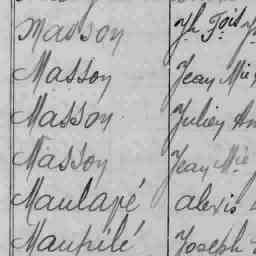 Masson Jh Fois
Masson Jean Mie
Masson Julien
Masson Jean Mie
Maulavé alexis
Maupilé Joseph